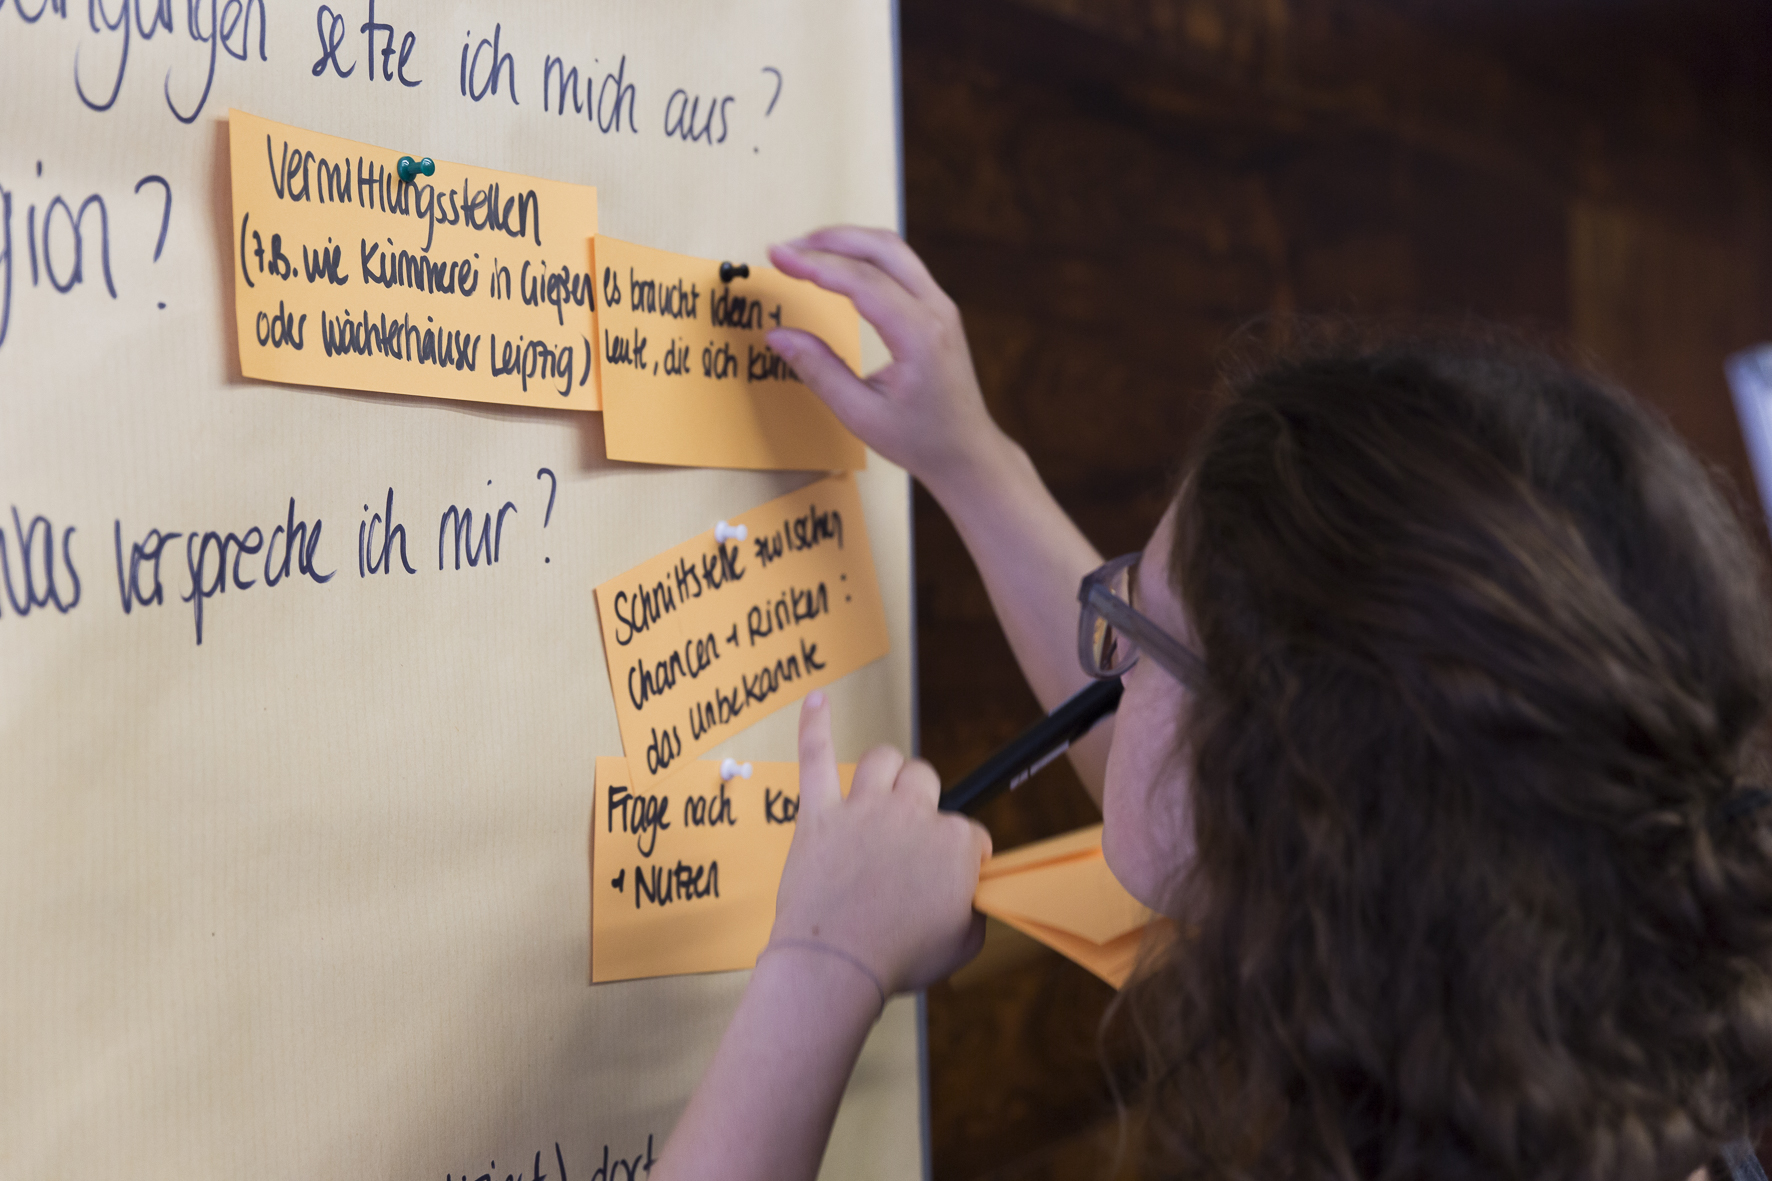 setze ich mich aus?
Vermittlungsstellen
(z.B. wie Kümmerei in Gießen
oder Wächterhäuser Leipzig)
es braucht Ideen +
Leute, die sich
Was verspreche ich mir?
Schnittstelle zwischen
Chancen + Risiken:
das Unbekannte
Frage nach
+ Nutzen
dort